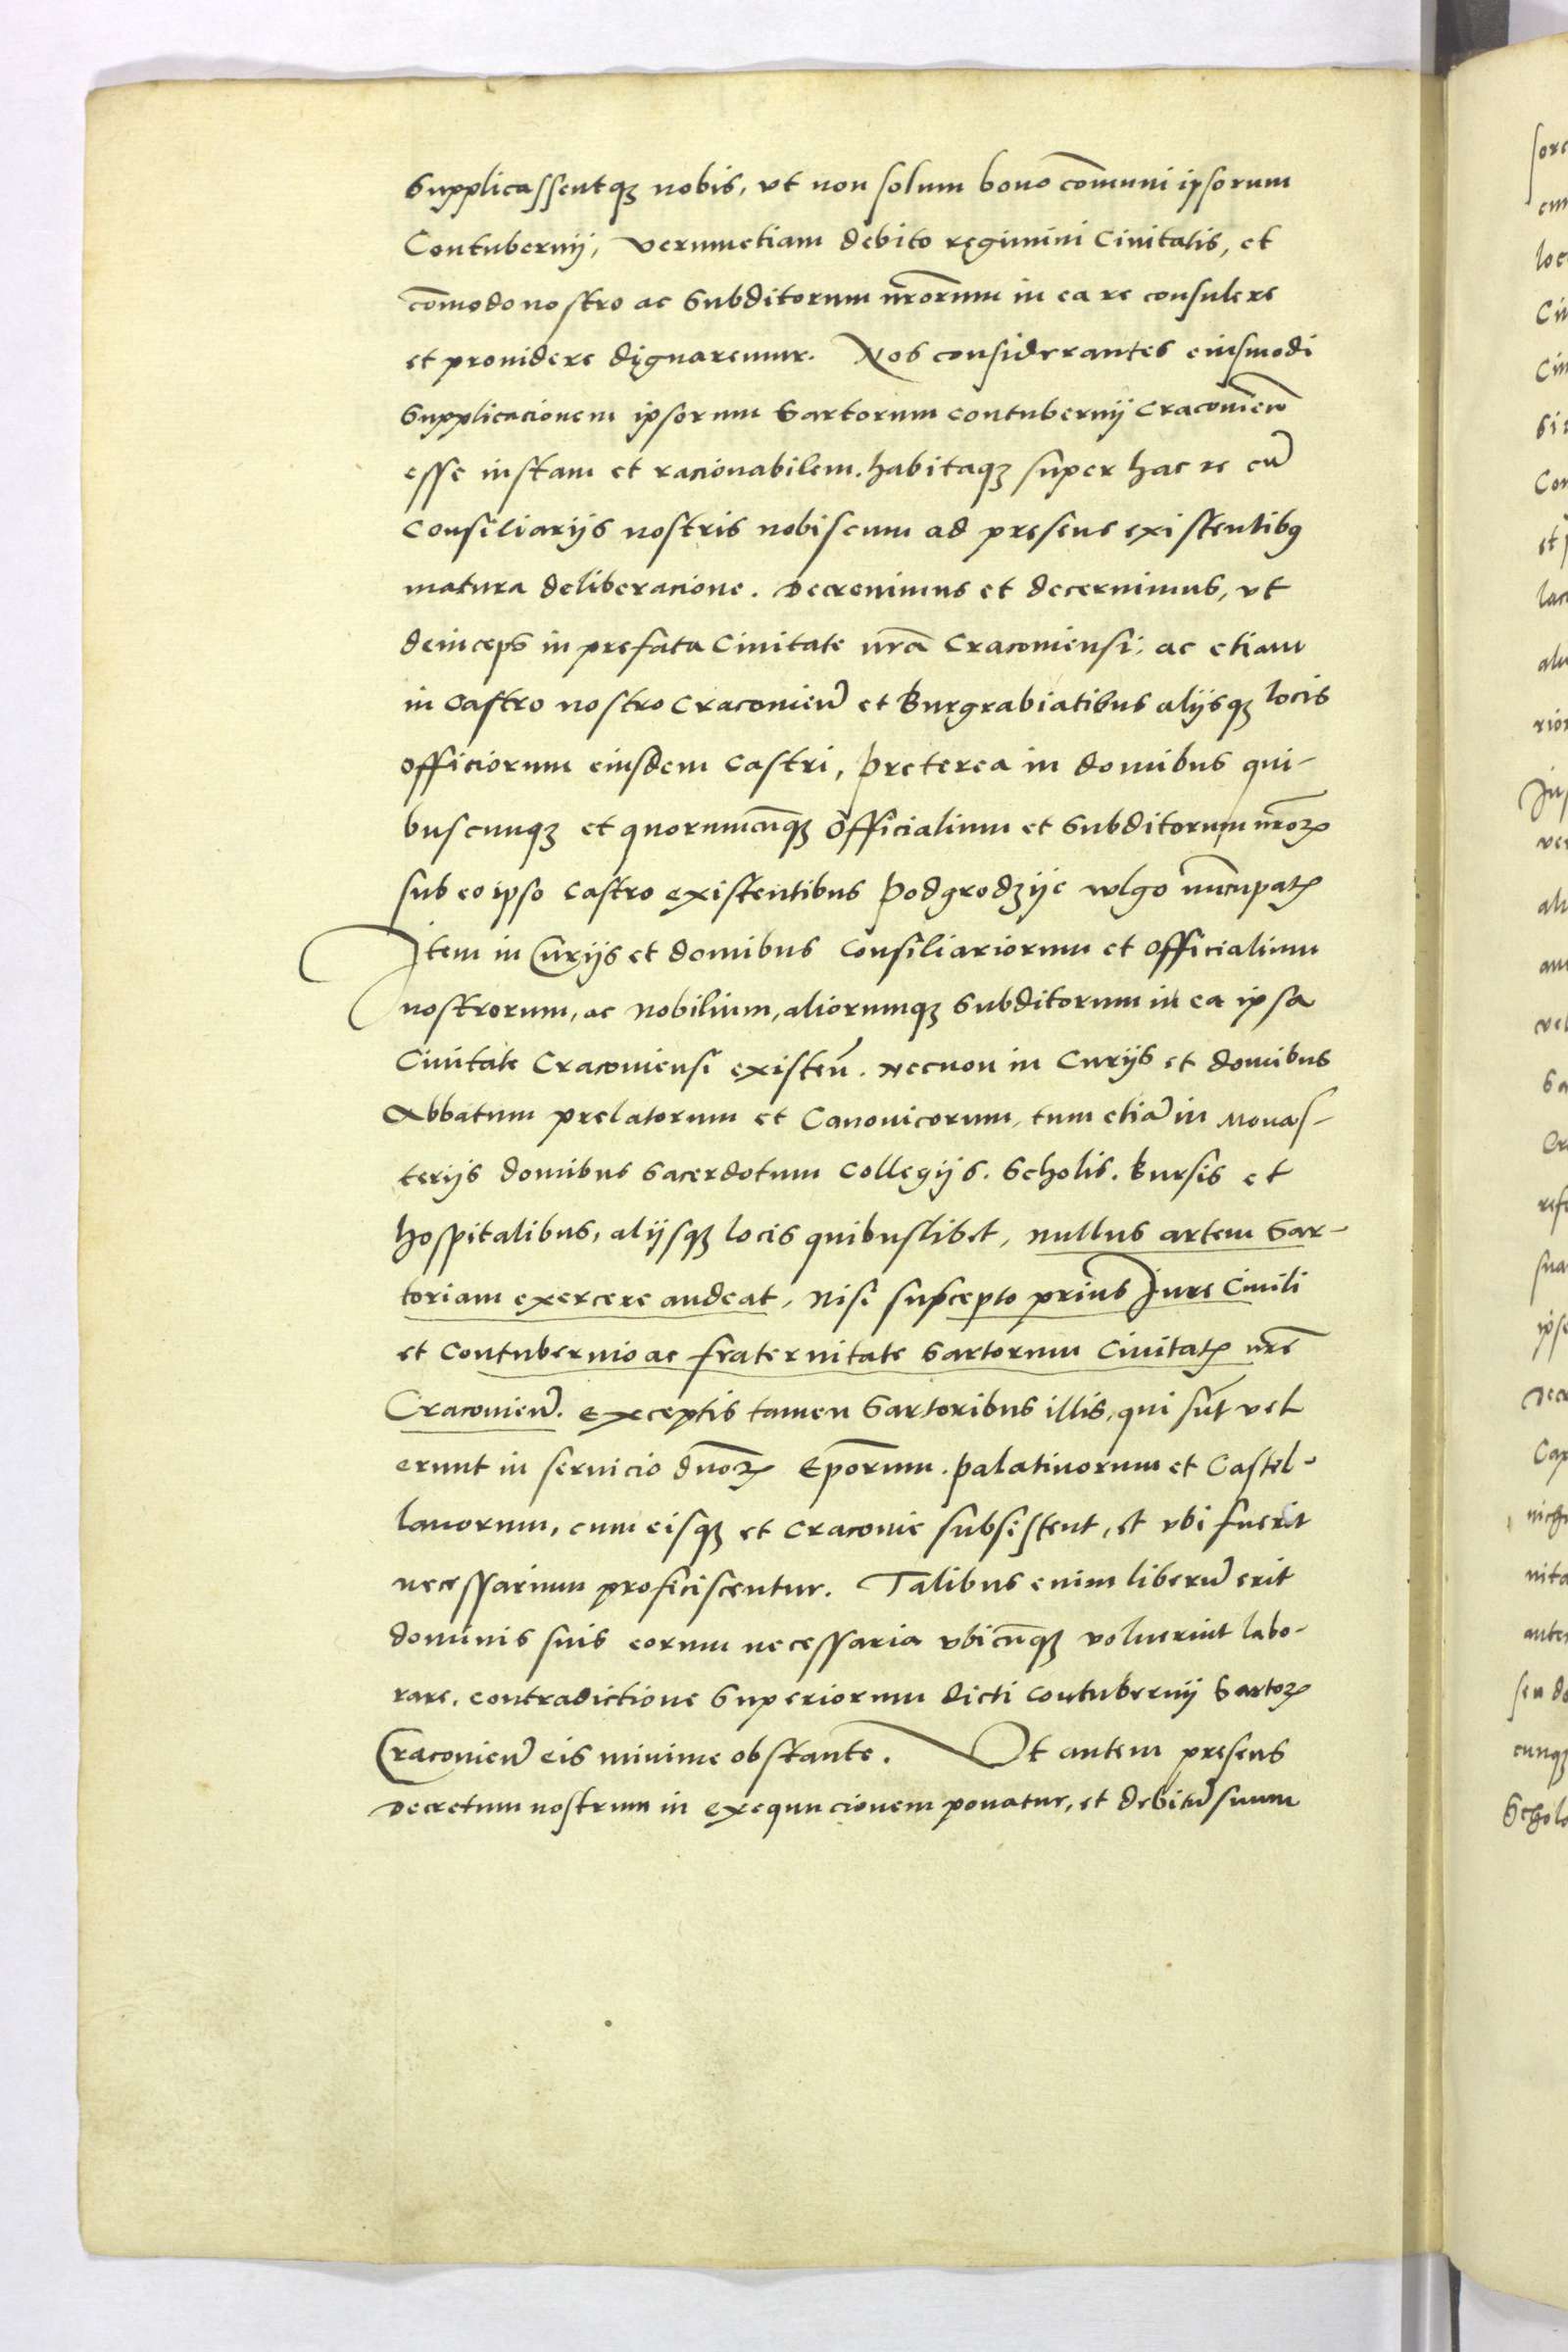 Supplicassentqȝ nobis, vt non solum bono cōmuni ipsorum
Contubernij, verumetiam debito regimini Ciuitatis, et
cōmodo nostro ac Subditorum nr̄orum in ea re consulere
et prouidere dignaremur. Nos considerantes eiusmodi
Supplicacionem ipsorum Sartorum contubernij Cracouien̄
esse iustam et racionabilem. habitaqȝ super hac re cū
Consiliarijs nostris nobiscum ad presens existentibꝰ
matura deliberacione. Decreuimus et decernimus, vt
deinceps in prefata Ciuitate nr̄a Cracouiensi, ac etiam
in Castro nostro Cracouien̄ et Burgrabiatibus alijsqȝ locis
officiorum eiusdem Castri, Preterea in domibus qui-
buscunqȝ et quorumcūqȝ Officialium et Subditorum nr̄oꝝ
sub eo ipso Castro existentibus Podgrodzije wlgo nūcupatꝭ
Item in Curijs et domibus Consiliariorum et Officialium
nostrorum, ac Nobilium, aliorumqȝ Subditorum in ea ipsa
Ciuitate Cracouiensi existen̄. Necnon in Curijs et domibus
Abbatum prelatorum et Canonicorum, tum etiā in Monas-
terijs domibus Sacerdotum Collegijs. Scholis. Bursis et
Hospitalibus, alijsqȝ locis quibuslibet, nullus artem Sar-
toriam exercere audeat, Nisi suscepto prius Iure Ciuili
et Contubernio ac fraternitate Sartorum Ciuitatꝭ nr̄e
Cracouien̄. Exceptis tamen Sartoribus illis, qui sūt vel
erunt in seruicio dn̄oꝝ Ep̄orum. Palatinorum et Castel-
lanorum, cum eisqȝ et Cracouie subsistent, et vbi fuerit
necessarium proficiscentur. Talibus enim liberū erit
dominis suis eorum necessaria vbicūqȝ voluerint labo-
rare, contradictione Superiorum dicti Contubernij Sartoꝝ
Cracouien̄ eis minime obstante. Vt autem presens
Decretum nostrum in exequucionem ponatur, et debitū suum